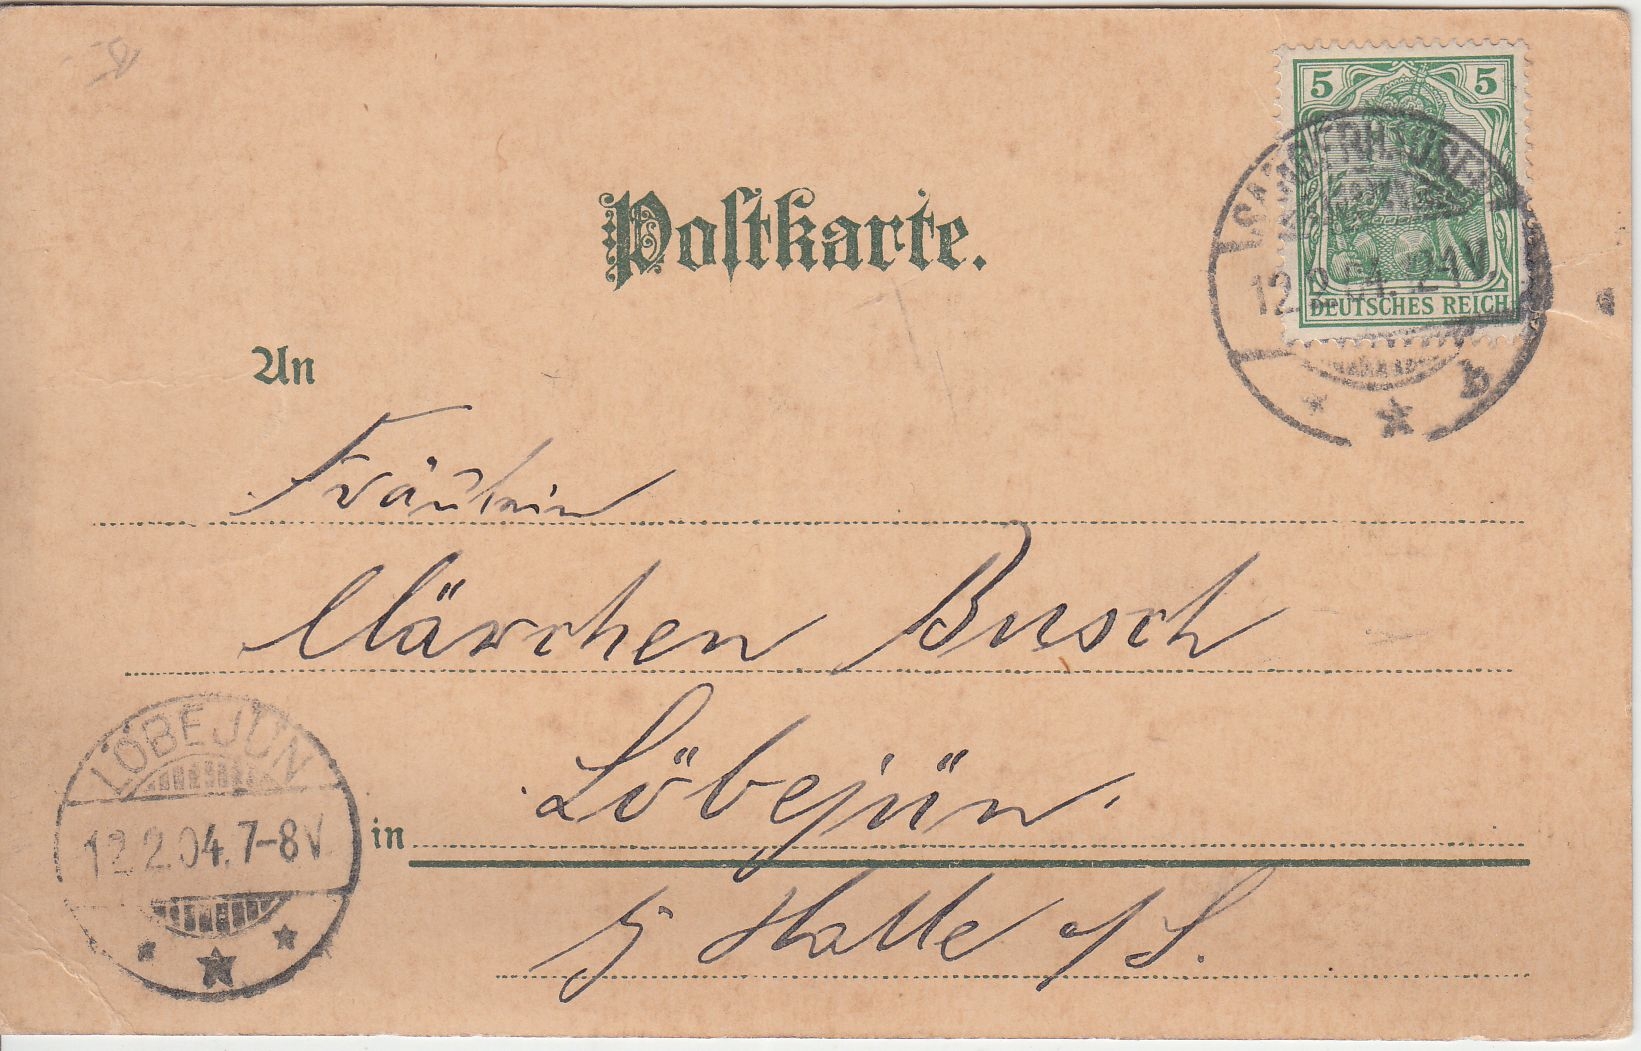 5 5
SANGERHAUSEN
12.2.04. 12-1V.
DEUTSCHES REICH
b
Postkarte.
An
Fräulein
Märchen Busch
LÖBEJÜN
12.2.04. 7-8V
in
Löbejün.
b/ Halle a/S.